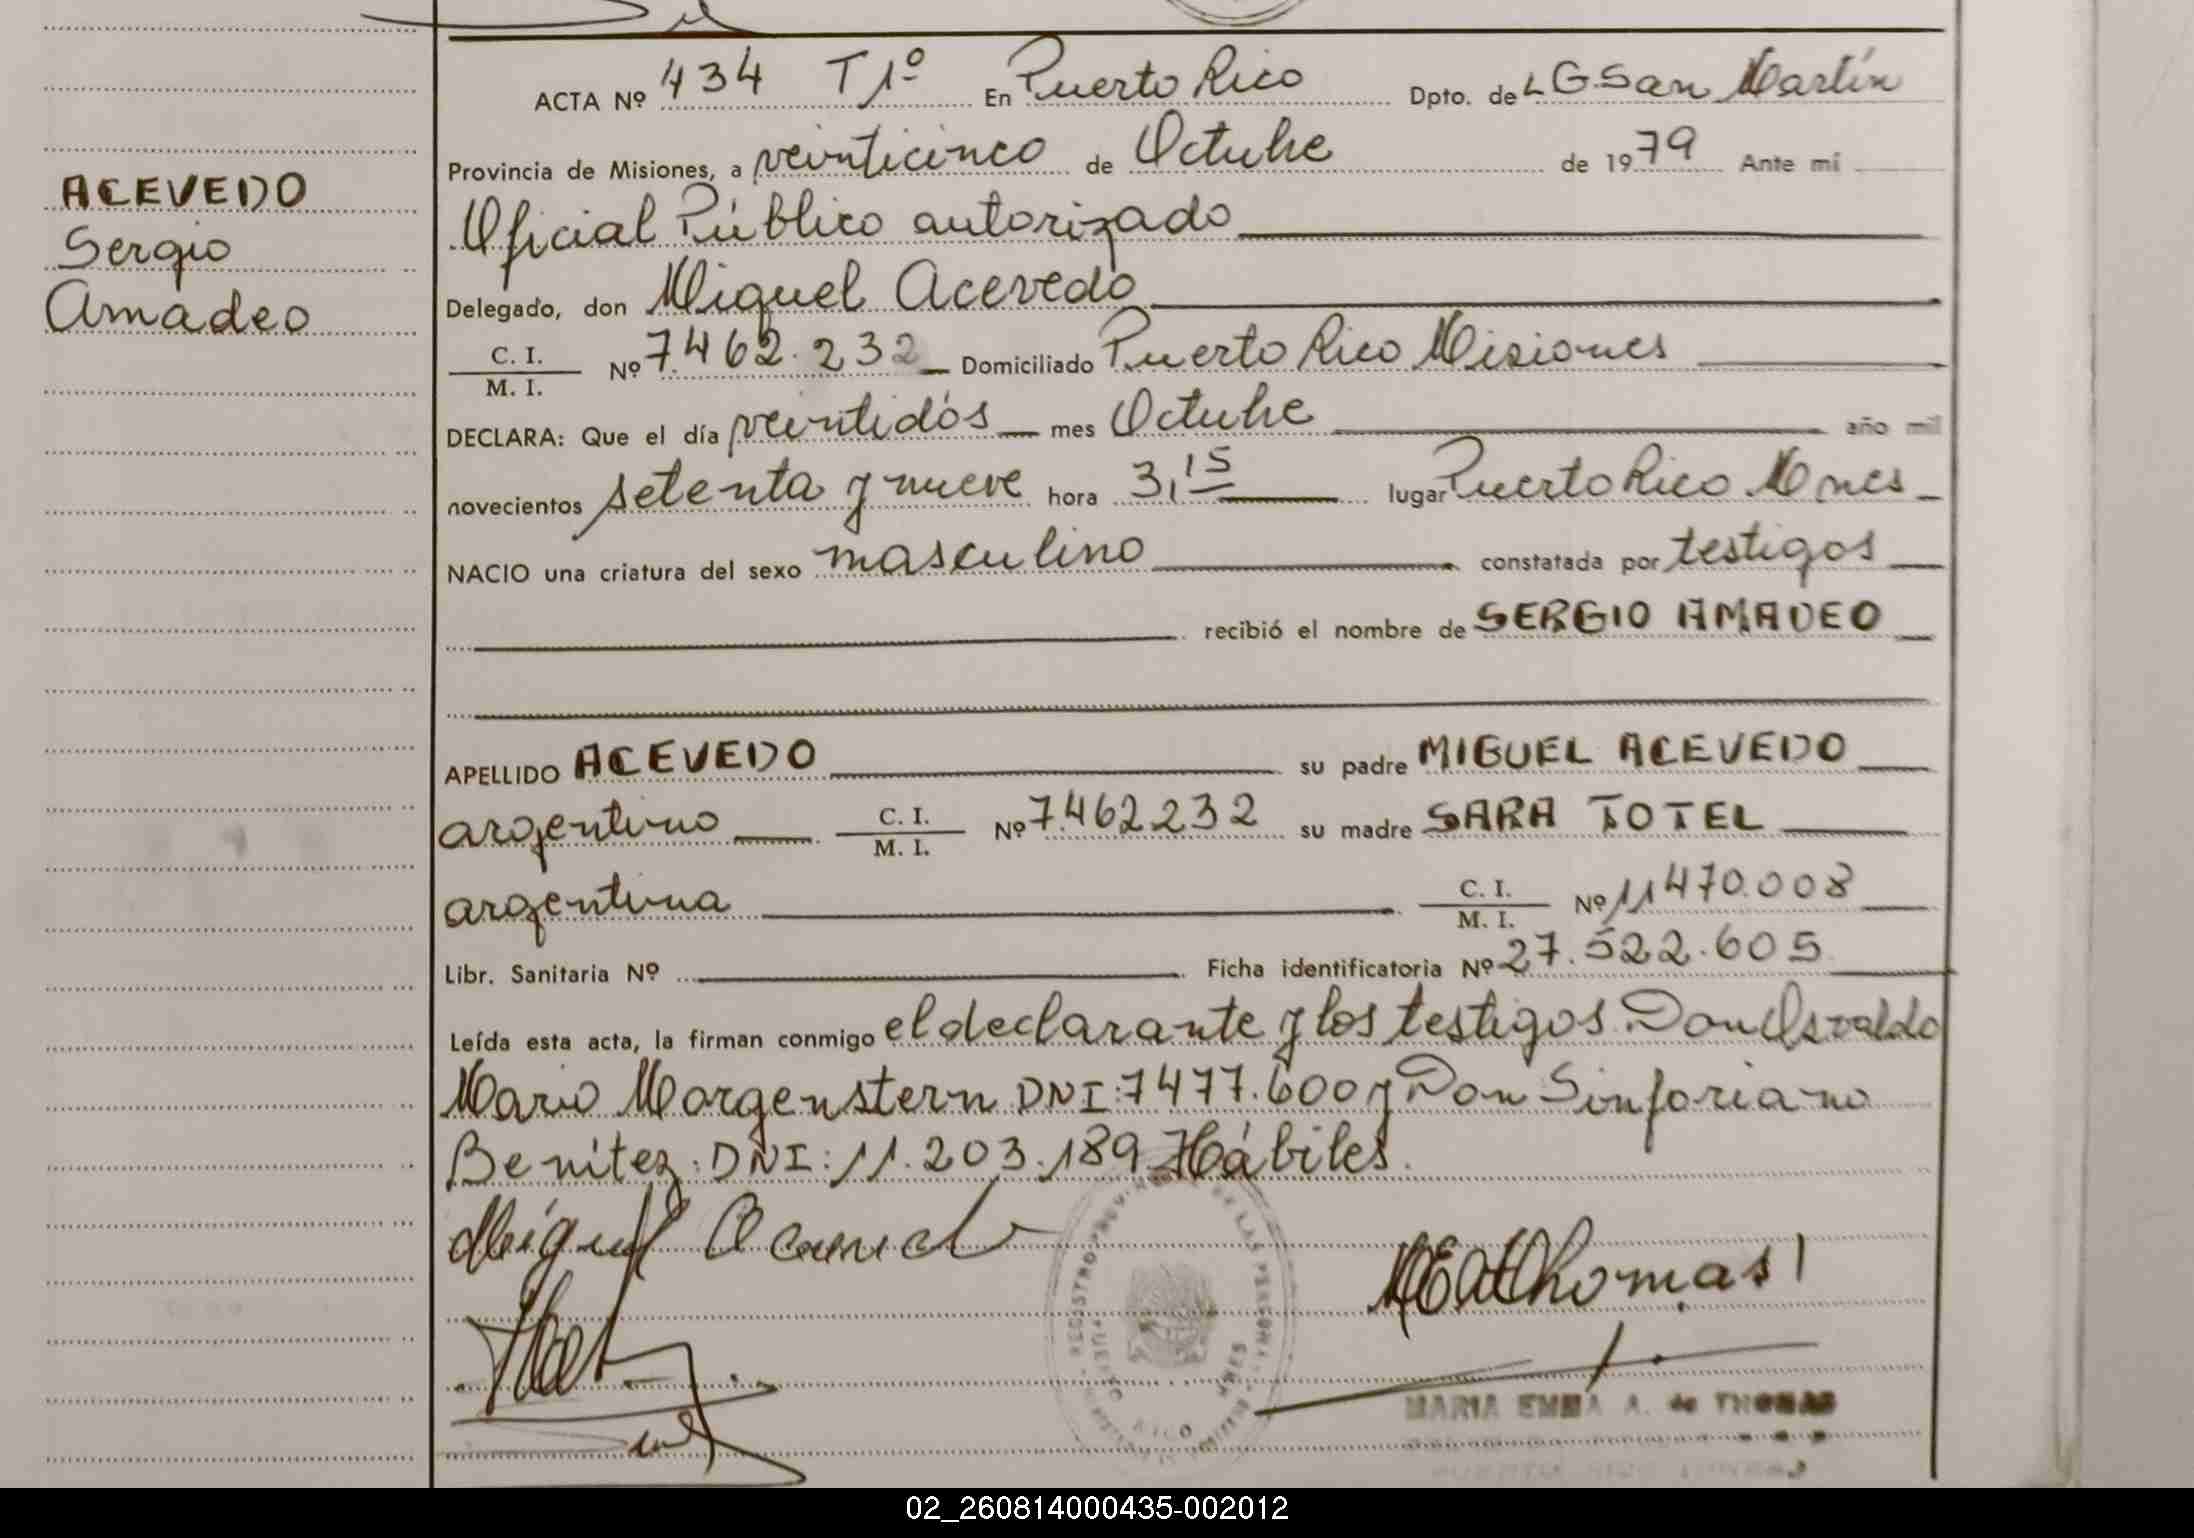 ACTA Nº 434 T 1º En Puerto Rico Dpto. de L G. San Martín
Provincia de Misiones, a veinticinco de Octubre de 1979 Ante mí
ACEVEDO
Oficial Público autorizado
Sergio
Delegado, don Miguel Acevedo
Amadeo
C. I.
M. I.
Nº 7.462.232 Domiciliado Puerto Rico Misiones
DECLARA: Que el día veintidós mes Octubre año mil
novecientos setenta y nueve hora 3,15 lugar Puerto Rico Mnes
NACIO una criatura del sexo masculino constatada por testigos
recibió el nombre de SERGIO AMADEO
APELLIDO ACEVEDO su padre MIGUEL ACEVEDO
argentino C. I. M. I. Nº 7.462.232 su madre SARA TOTEL
argentina C. I. M. I. Nº 11470.008
Libr. Sanitaria Nº Ficha identificatoria Nº 27.522.605
Leída esta acta, la firman conmigo el declarante y los testigos Don Osvaldo
Mario Morgenstern DNI: 7477.600 y Don Sinforiano
Benitez: DNI: 11.203.189 Hábiles.
Miguel Acevedo
MEAThomas
REGISTRO PROV. DE LAS PERSONAS
PUERTO RICO
MARIA EMMA A. de THOMAS
02_260814000435-002012